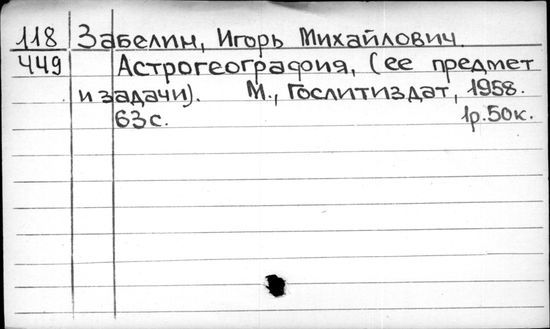 118 Забелин, Игорь Михайлович.
449 Астрогеография, (ее предмет
и задачи). М., Гослитиздат, 1958.
63 с. 1р.50к.